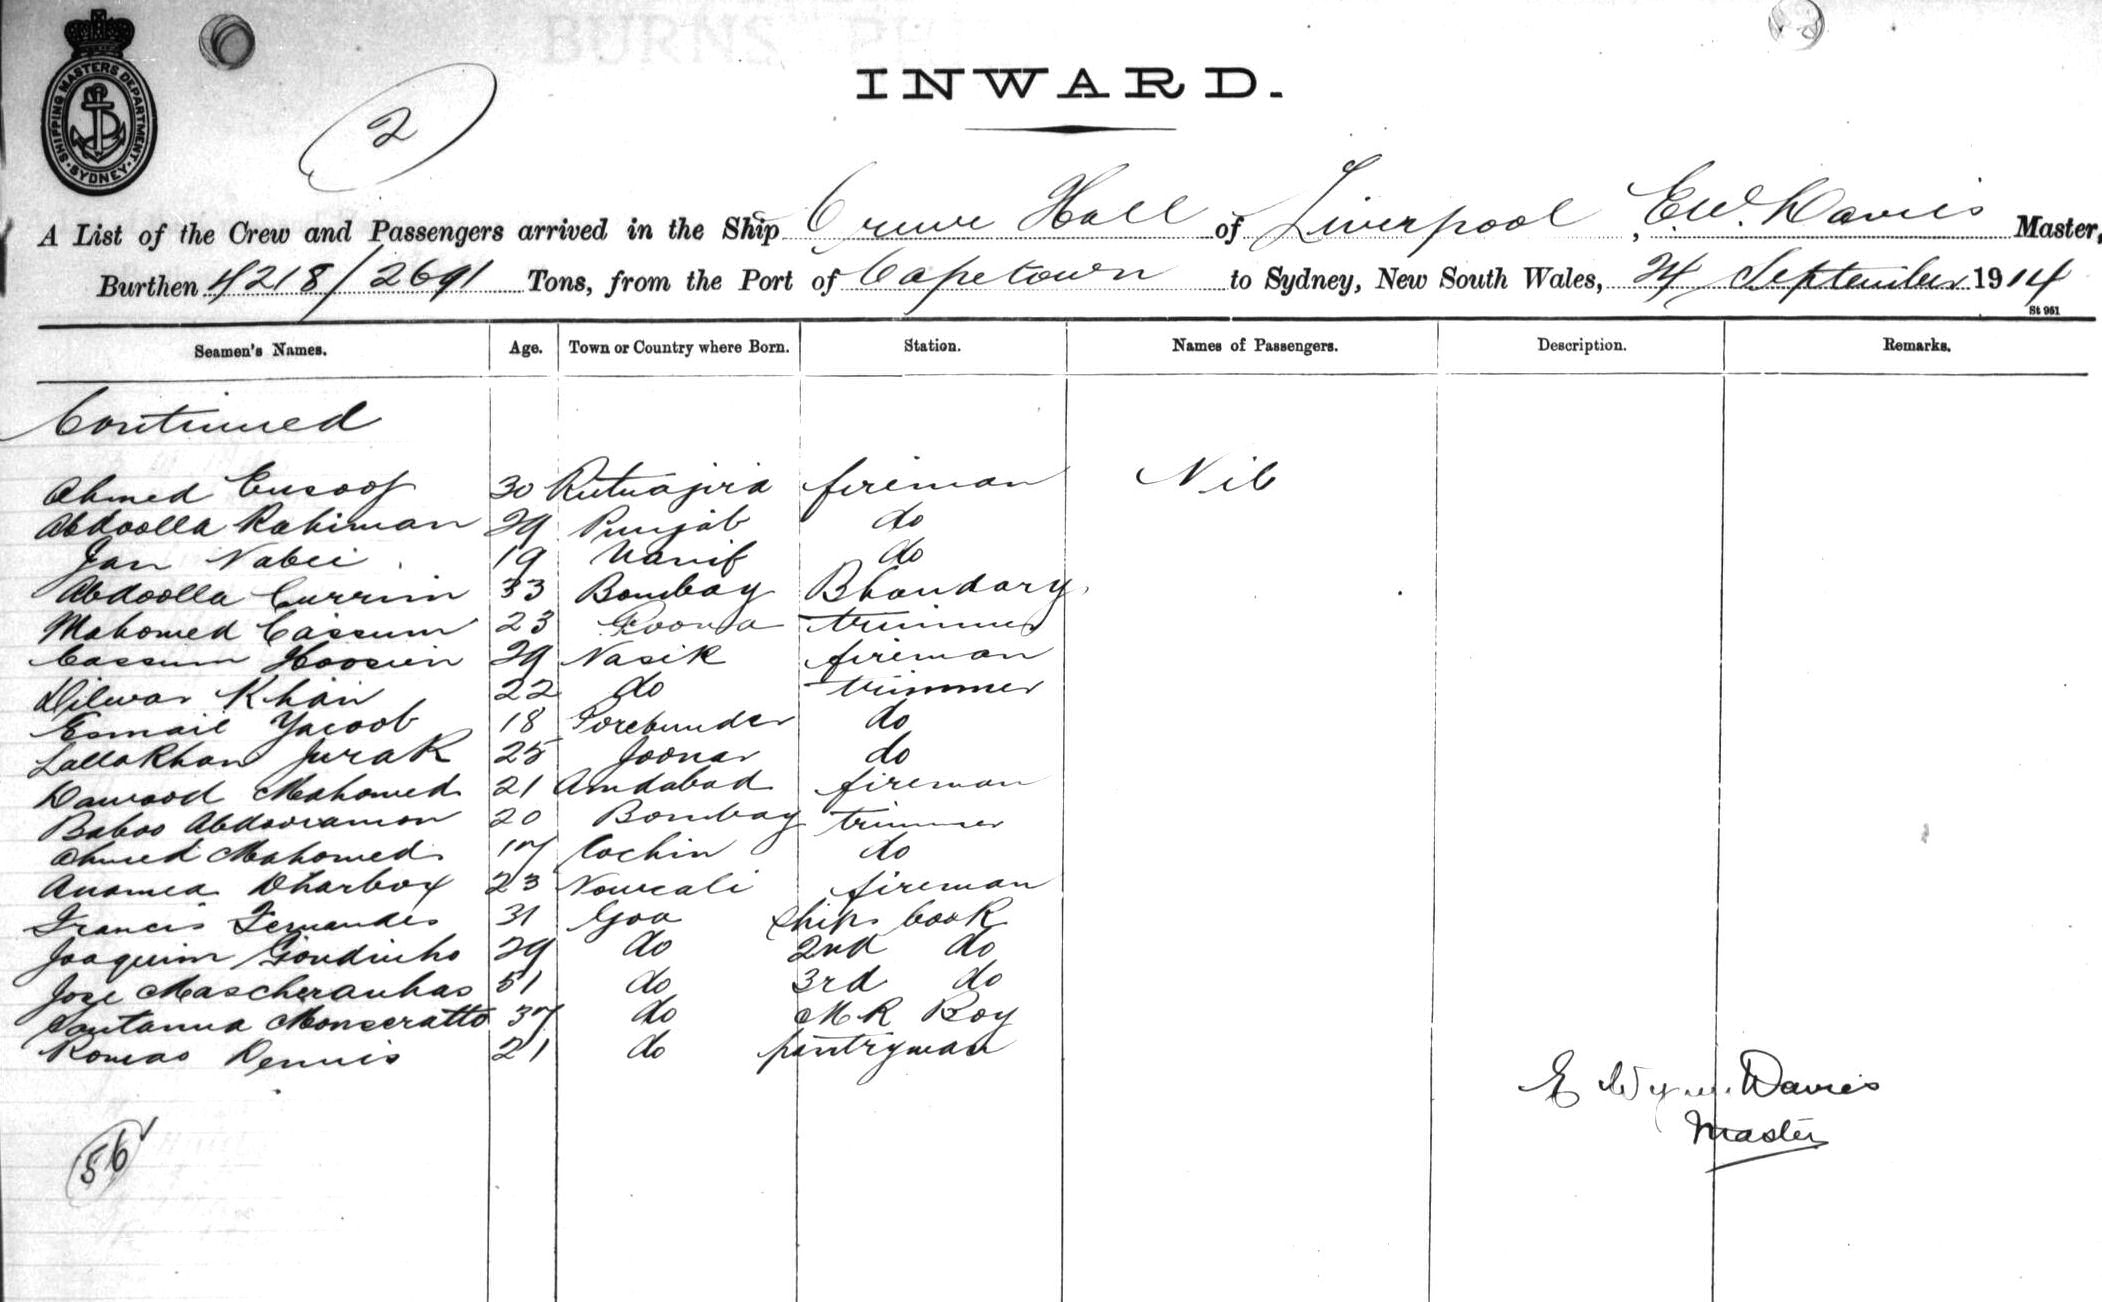 SHIPPING MASTERS DEPARTMENT · SYDNEY ·
2
INWARD.
A List of the Crew and Passengers arrived in the Ship Crewe Hall of Liverpool, E.W. Davies Master,
Burthen 4218/2691 Tons, from the Port of Capetown to Sydney, New South Wales, 24 September 1914
St 961
Seamen's Names. Age. Town or Country where Born. Station. Names of Passengers. Description. Remarks.
Continued
Ahmed Eusoof 30 Rutnajiria fireman Nil
Abdoolla Rahiman 29 Punjab do
Jan Nabei 19 do
Abdoolla Currim 33 Bombay Bhandary
Mahomed Cassum 23 Poona trimmer
Cassum Hoosein 29 Nasik fireman
Dilwar Khan 22 do trimmer
Esmail Yacoob 18 Porebunder do
Lallakhan Jurak 25 Joonar do
Dawood Mahomed 21 Amdabad fireman
Baboo Abdooramon 20 Bombay trimmer
Ahmed Mahomed 17 Cochin do
Anamea Dharbox 23 Nowcali fireman
Francis Fernandes 31 Goa Ships Cook
Joaquim Goudinho 29 do 2nd do
Jose Mascheranhas 51 do 3rd do
Santanna Monseratto 37 do M R Boy
Romao Dennis 21 do pantryman
E Wynn Davies
Master
56